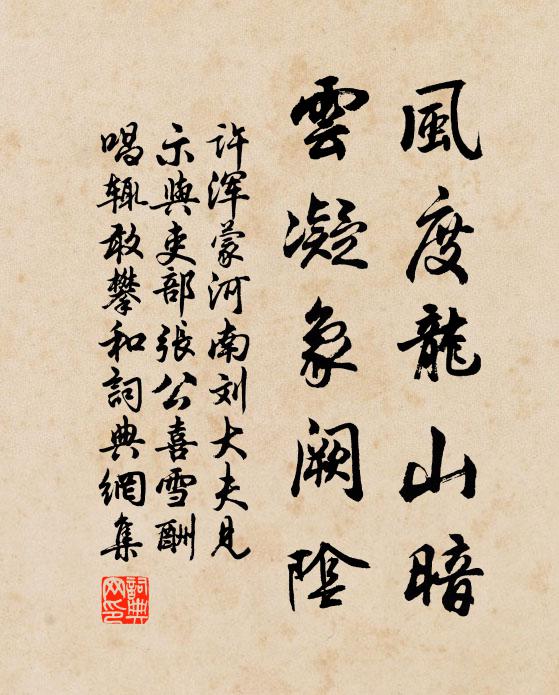 風度龍山暗
雲凝象阙陰
许浑蒙河南刘大夫見
示與吏部張公喜雪酬
唱辄敢攀和詞典網集
詞典網印